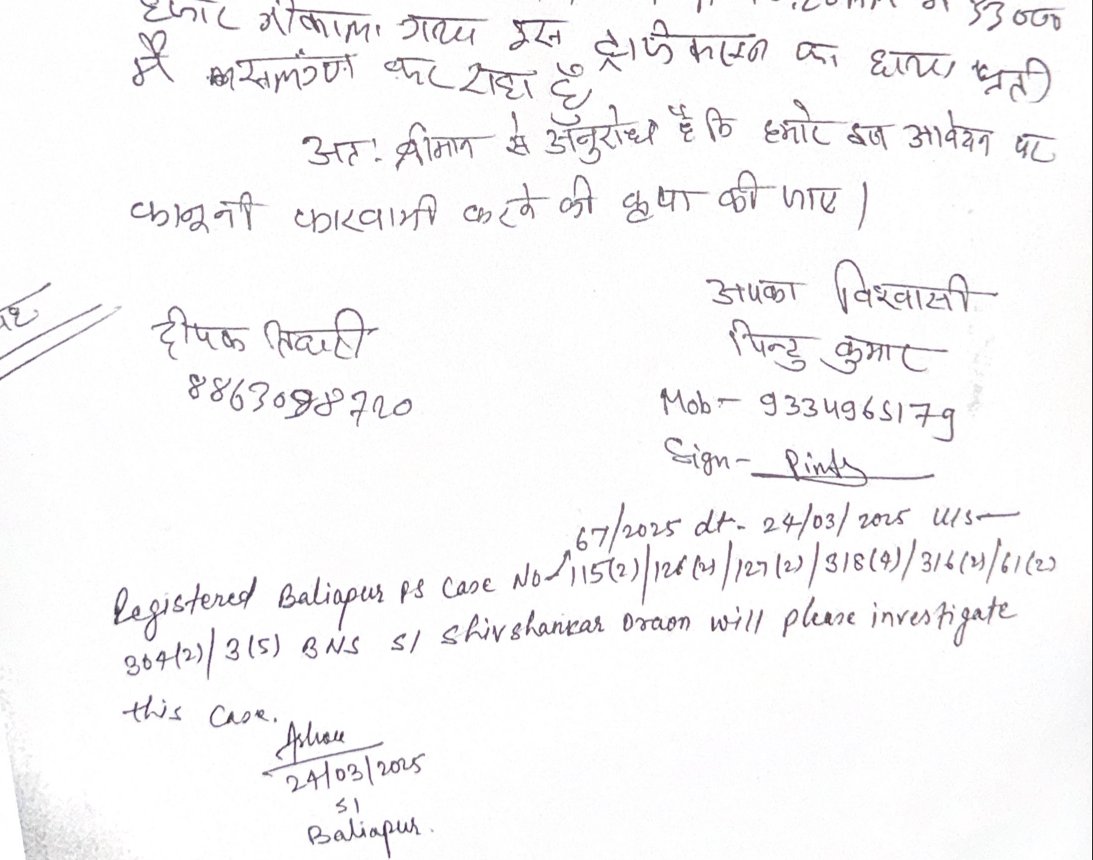 हजार नीकाला गया इस ट्रांजेकासन का छाया प्रती
33000
मैं असलंग्ण कर रहा हूँ
अत: श्रीमान से अनुरोध है कि हमारे इस आवेदन पर
कानूनी कारवाभी करने की कृपा की जाए।
आपका विश्वासी
दीपक तिवारी
पिन्टु कुमार
8863098720
Mob- 9334965179
Sign- Pintu
67/2025 dt- 24/03/2025 U/s-
Registered Baliapur PS Case No- 115(2)/126(2)/127(2)/318(4)/316(2)/61(2)
304(2)/3(5) BNS SI Shivshankar Oraon will please investigate
this case.
24/03/2025
SI
Baliapur.